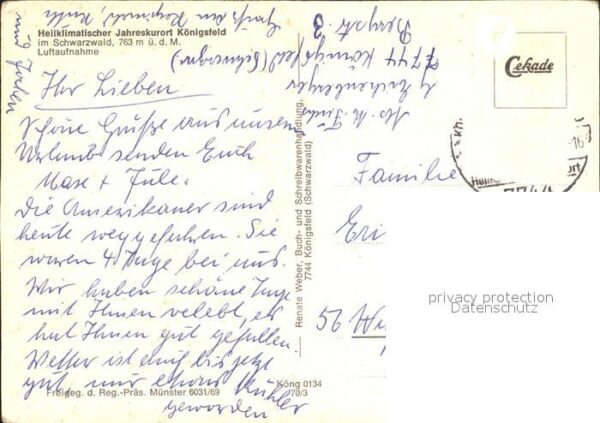 Heilklimatischer Jahreskurort Königsfeld
im Schwarzwald, 763 m ü. d. M.
Luftaufnahme
Ihr Lieben
Schöne Grüße aus unserem
Urlaub senden Euch
Max + Jule.
Die Amerikaner sind
heute weggefahren. Sie
waren 4 Tage bei uns.
Wir haben schöne Tage
mit Ihnen verlebt, es
hat Ihnen gut gefallen.
Wetter ist auch bis jetzt
gut, nur etwas Kühler
geworden
Freigeg. d. Reg.-Präs. Münster 6031/69
Köng 0134
70/3
Renate Weber, Buch- und Schreibwarenhandlung,
7744 Königsfeld (Schwarzwald)
7744 Königsfeld (Schwarzw)
Bergstr. 3
Cekade
Familie
Eri
56 W
privacy protection
Datenschutz